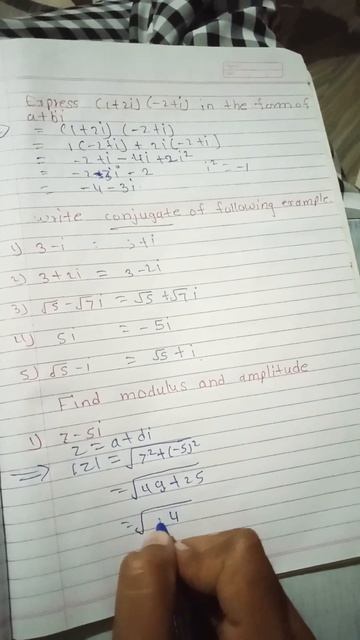 Express (1+2i) (-2+i) in the form of
a+bi
= (1+2i) (-2+i)
= 1(-2+i) + 2i(-2+i)
= -2+i-4i+2i²
= -2-3i-2 i²=-1
= -4-3i
write conjugate of following example
1) 3-i = 3+i
2) 3+2i = 3-2i
3) √5-√7i = √5+√7i
4) 5i = -5i
5) √5-i = √5+i
Find modulus and amplitude
1) 7-5i
z = a+bi
⇒ |z| = √7²+(-5)²
= √49+25
= √ 4